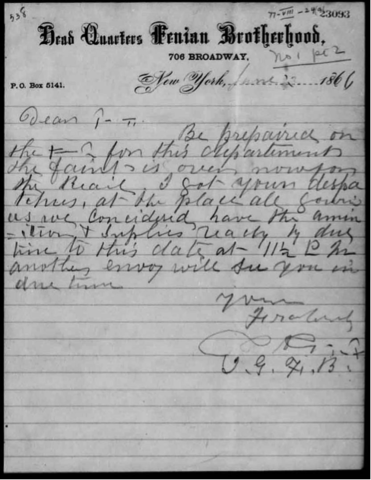 338
23093
Head Quarters Fenian Brotherhood,
706 BROADWAY,
No 1 pc 2
P. O. Box 5141.
New York, 1866
Dear
Be prepaired on
the for this department
the faint is over now for
the Reail I got yours despa
tches, at the place all gowin
as we conceidured have the amin
=ition & supplies ready by due
time to this date at 11½ P M
another envoy will see you in
due time
Yours
Fraternly
F. B.